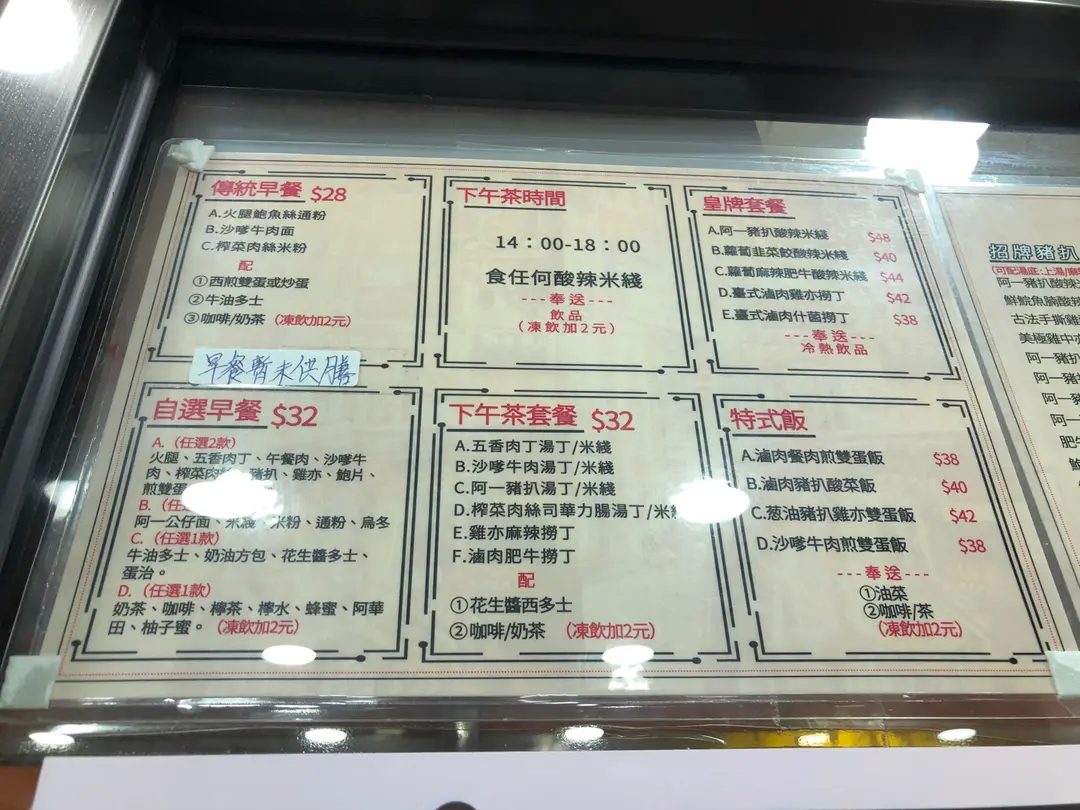 傳統早餐 $28
A.火腿鮑魚絲通粉
B.沙嗲牛肉面
C.榨菜肉絲米粉
配
①西煎雙蛋或炒蛋
②牛油多士
③咖啡/奶茶 (凍飲加2元)
早餐暫未供膳
下午茶時間
14：00-18：00
食任何酸辣米綫
---奉送---
飲品
(凍飲加2元)
皇牌套餐
A.阿一豬扒酸辣米綫 $48
B.蘿蔔韭菜餃酸辣米綫 $40
C.蘿蔔麻辣肥牛酸辣米綫 $44
D.臺式滷肉雞亦撈丁 $42
E.臺式滷肉什菌撈丁 $38
---奉送---
冷熱飲品
自選早餐 $32
A. (任選2款)
火腿、五香肉丁、午餐肉、沙嗲牛
肉、榨菜肉 豬扒、雞亦、鮑片、
煎雙蛋
B. (任
阿一公仔面、米綫、米粉、通粉、烏冬
C. (任選1款)
牛油多士、奶油方包、花生醬多士、
蛋治。
D. (任選1款)
奶茶、咖啡、檸茶、檸水、蜂蜜、阿華
田、柚子蜜。 (凍飲加2元)
下午茶套餐 $32
A.五香肉丁湯丁/米綫
B.沙嗲牛肉湯丁/米綫
C.阿一豬扒湯丁/米綫
D.榨菜肉絲司華力腸湯丁/米綫
E.雞亦麻辣撈丁
F.滷肉肥牛撈丁
配
①花生醬西多士
②咖啡/奶茶 (凍飲加2元)
特式飯
A.滷肉餐肉煎雙蛋飯 $38
B.滷肉豬扒酸菜飯 $40
C.葱油豬扒雞亦雙蛋飯 $42
D.沙嗲牛肉煎雙蛋飯 $38
---奉送---
①油菜
②咖啡/茶
(凍飲加2元)
招牌豬扒
(可配湯底:上湯/麻
阿一豬扒酸辣
鮮鯇魚腩酸辣
古法手撕雞
美極雞中亦
阿一豬扒
阿一豬
阿一豬
阿一
肥牛